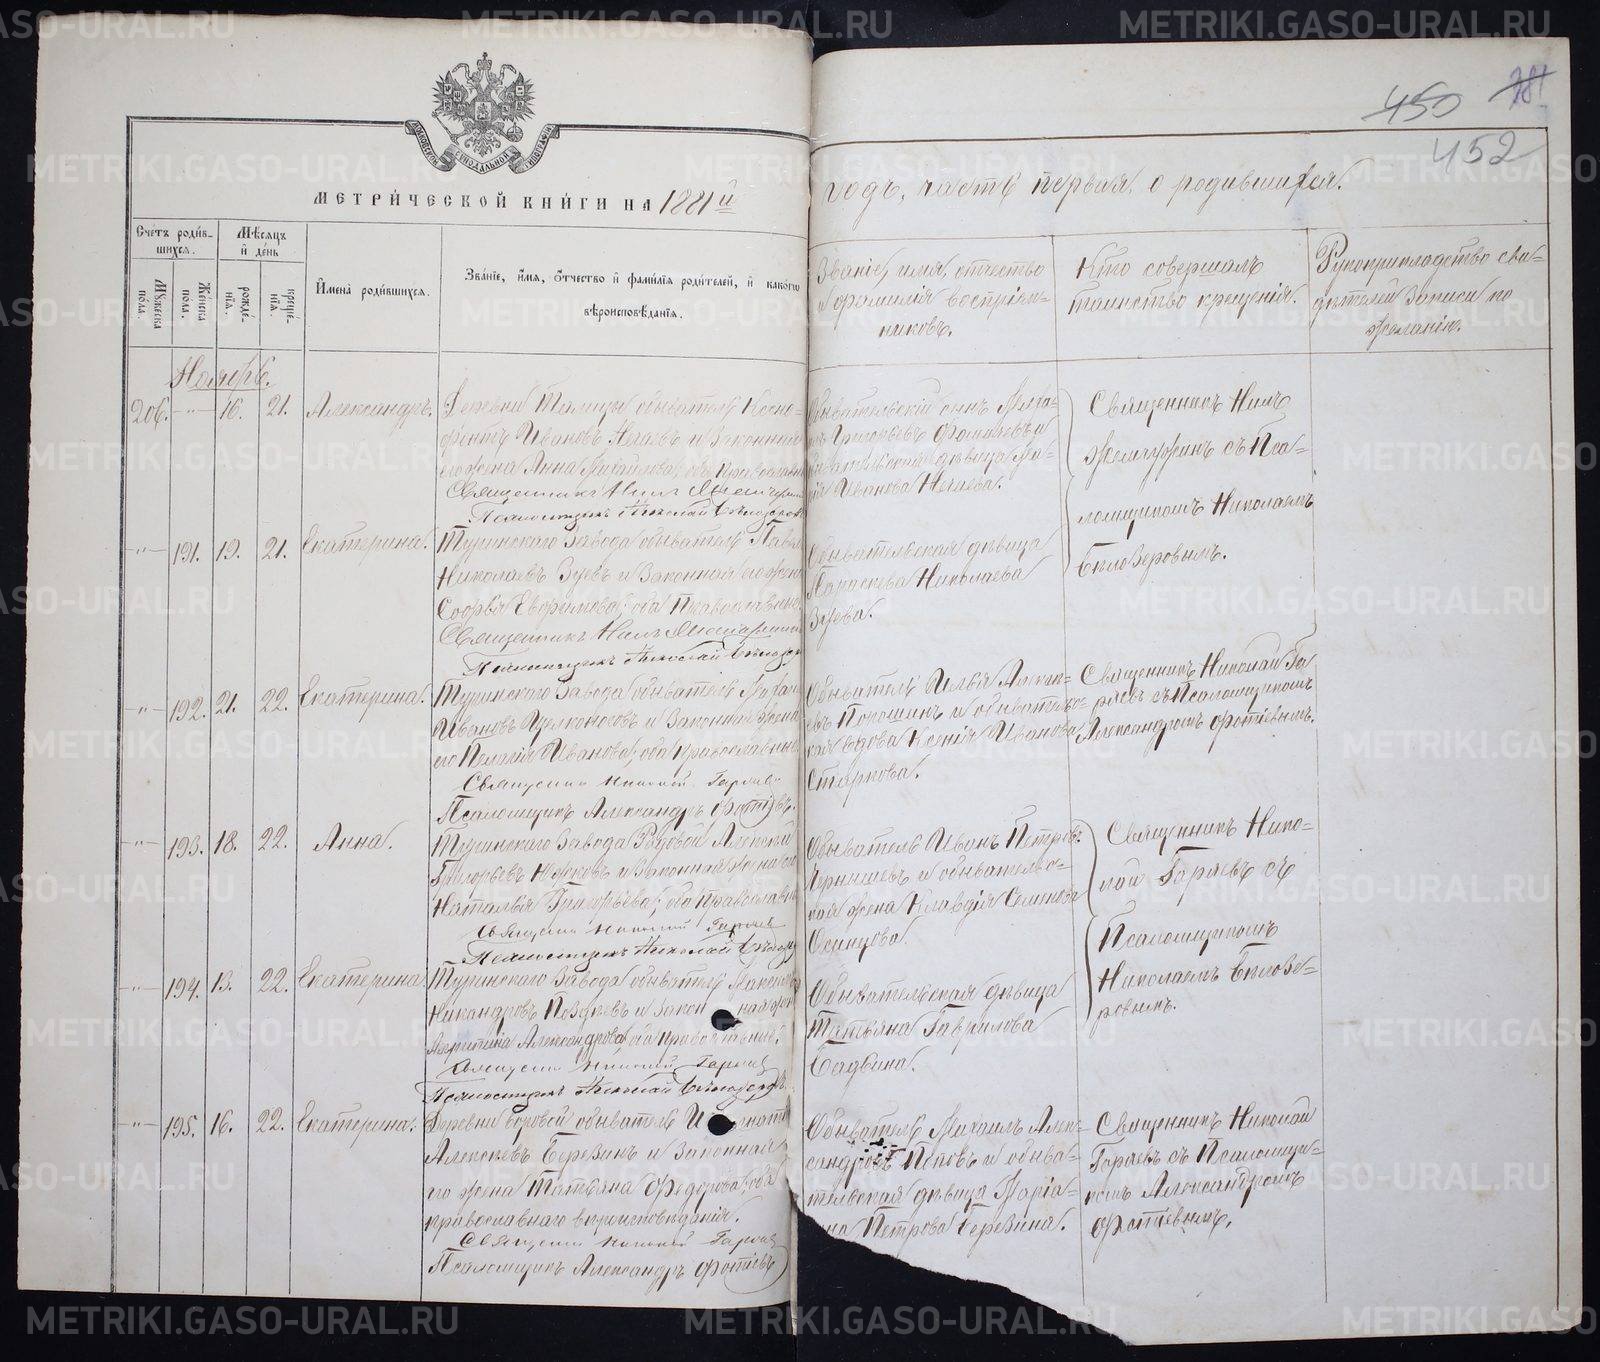 450
452
МЕТРИ́ЧЕСКОЙ КНИ́ГИ НА 1881й
годъ, часть первая, о родившихся.
Сче́тъ роди́в-
шихся.
Му́жеска
по́ла.
Же́нска
по́ла.
Мѣ́сяцъ
и҆ де́нь
рожде́-
нїя.
креще́-
нїя.
И҆мена̀ роди́вшихся.
Зва́нїе, и҆́мя, ѻ҆́тчество и҆ фами́лїя роди́телей, и҆ како́гѡ
вѣроисповѣ́данїя.
Званіе, имя, отчество
и фамилія воспріем-
никовъ.
Кто совершалъ
таинство крещенія.
Рукоприкладство сви-
дѣтелей записи по
желанію.
Ноябрь.
206. -"- 16. 21. Александръ.
Деревни Талицы обыватель Ксено-
фонтъ Ивановъ Нечаевъ и законная
его жена Анна Михайлова; оба православн
Священникъ Нилъ
Псаломщикъ Николай Бѣлозеровъ
Григорьевъ
дѣвица
Иванова Нечаева.
Священникъ Нилъ
съ Пса-
ломщикомъ Николаемъ
Бѣлозеровымъ.
-"- 191. 19. 21. Екатерина.
Туринскаго завода обыватель Павелъ
Николаевъ Зуевъ и законная его жена
Софья Евфимова; оба православны
Священникъ Нилъ
Псаломщикъ Николай Бѣлозер
Обывательская дѣвица
Параскева Николаева
Зуева.
-"- 192. 21. 22. Екатерина.
Туринскаго завода обыватель
Ивановъ Щелконоговъ и законная жена
его Пелагія Иванова; оба православны
Священник Николай Горяев
Псаломщикъ Александръ Фотіевъ.
Обыватель Илья Алексѣ-
евъ Порошинъ и обыватель-
ская вдова Ксенія Иванова
Старкова.
Священникъ Николай Го-
ряевъ съ Псаломщикомъ
Александромъ Фотіевымъ.
-"- 193. 18. 22. Анна.
Туринскаго завода Рядовой Алексѣй
Григорьевъ Южковъ и законная жена его
Наталья Григорьева; оба православн
Священник Николай Горяев
Псаломщикъ Николай Бѣлозер
Обыватель Иванъ Петровъ
Чернышевъ и обыватель-
ская жена Клавдія Семенова
Осинцова.
Священникъ Нико-
лай Горяевъ съ
Псаломщикомъ
Николаемъ Бѣлозе-
ровымъ.
-"- 194. 13. 22. Екатерина
Туринскаго завода обыватель Максимъ
Никандровъ Поздѣевъ и закон ная жена
Александрова; оба православные,
Священник Николай Горяев
Псаломщикъ Николай Бѣлозеровъ.
Обывательская дѣвица
Татьяна Гаврилова
Бадьина.
-"- 195. 16. 22. Екатерина.
Деревни Боровой обыватель И гнатій
Алексѣевъ Березинъ и законная
его жена Татьяна Федорова; оба
православнаго вѣроисповѣданія.
Священник Николай Горяев
Псаломщикъ Александръ Фотіевъ
Обыватель Михаилъ Алек-
сандровъ Поповъ и обыва-
тельская дѣвица Маріа-
на Петрова Березина.
Священникъ Николай
Горяевъ съ Псаломщи-
комъ Александромъ
Фотіевымъ.
METRIKI.GASO-URAL.RU